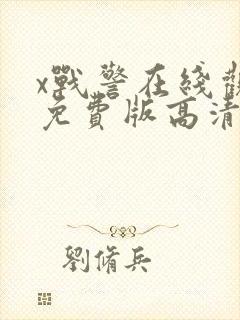 x戰警在綫觀
免費版高清
劉脩兵